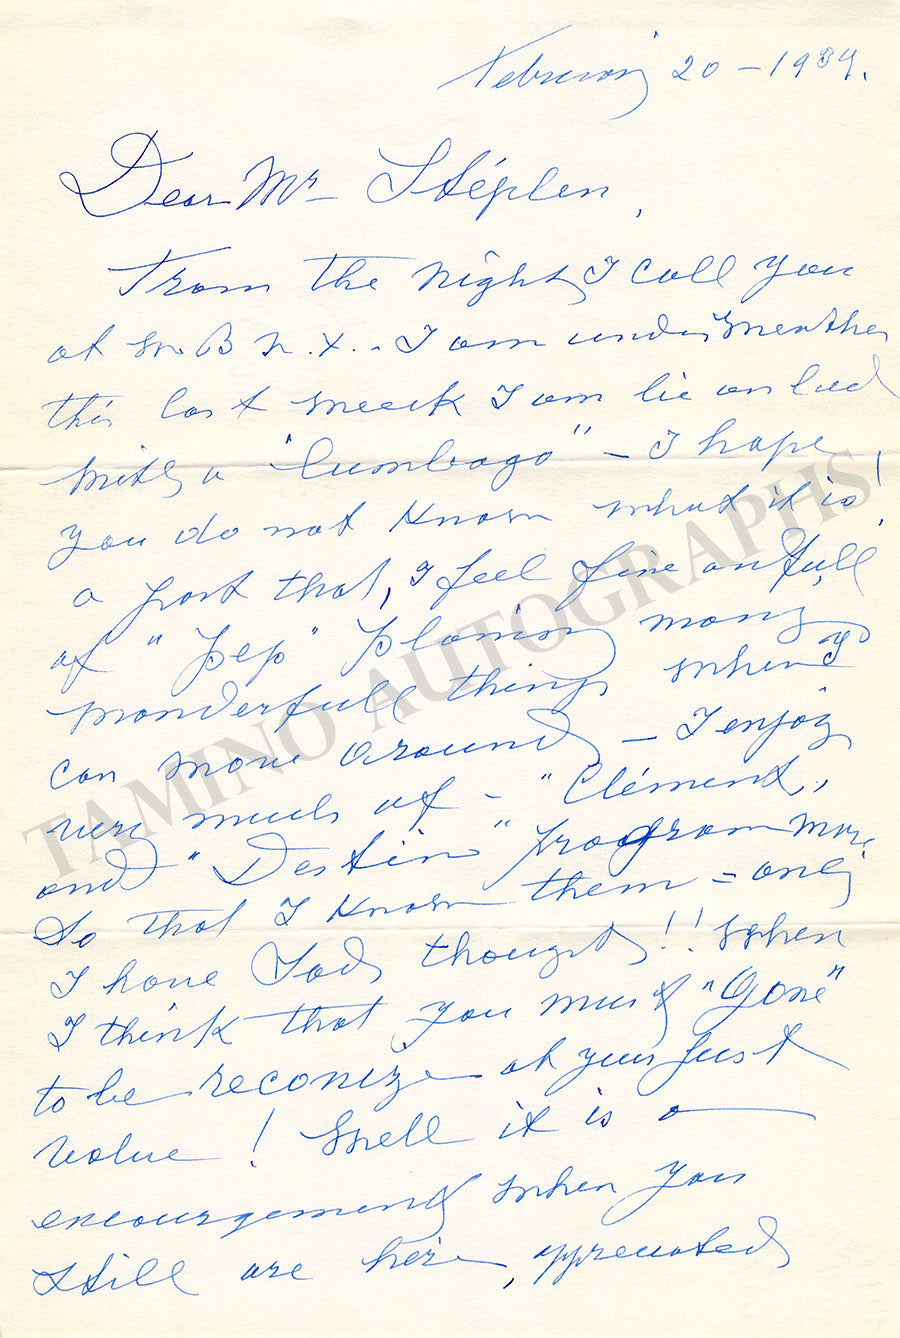 February 20 - 1989.
Dear Mr - Stéphen,
From the night, I call you
at W.B.N.X. - I am under weather
this last week I am lie on bed
with a "lumbago" - I hope
you do not know what it is!
a part that, I feel fine an full
of "pep" planing many
wonderfull things when I
can move around - I enjoy
very much at - "Clément,
and "Destin" program more
so that I know them = only
I have sad thought!! when
I think that you must "gone"
to be reconize at your just
value! Well it is a
encourgement when you
still are here, appreciated
TAMINO AUTOGRAPHS